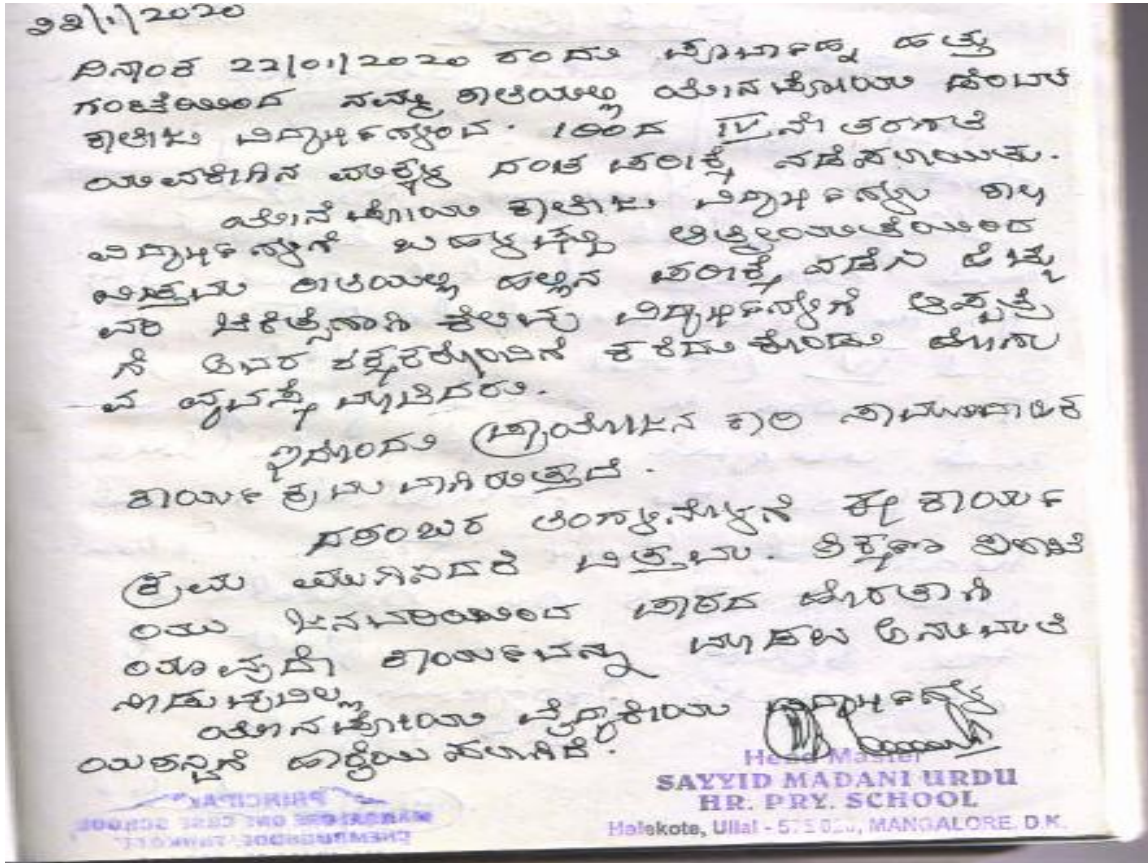 22/1/2020
ದಿನಾಂಕ 22/01/2020 ರಂದು ಪೂರ್ವಾಹ್ನ ಹತ್ತು
ಗಂಟೆಯಿಂದ ನಮ್ಮ ಶಾಲೆಯಲ್ಲಿ ಯೇನಪೋಯ ಡೆಂಟಲ್
ಕಾಲೇಜು ವಿದ್ಯಾರ್ಥಿಗಳಿಂದ. 1ರಿಂದ IV ನೇ ತರಗತಿ
ಯವರೆಗಿನ ಮಕ್ಕಳ ದಂತ ಪರೀಕ್ಷೆ ನಡೆಸಲಾಯಿತು.
ಯೇನೆಪೋಯ ಕಾಲೇಜು ವಿದ್ಯಾರ್ಥಿಗಳು ಶಾಲಾ
ವಿದ್ಯಾರ್ಥಿಗಳಿಗೆ ಬಹಳಷ್ಟು ಆತ್ಮೀಯತೆಯಿಂದ
ಶಾಲೆಯಲ್ಲಿ ಹಲ್ಲಿನ ಪರೀಕ್ಷೆ ನಡೆಸಿ ಹೆಚ್ಚು
ವರಿ ಚಿಕಿತ್ಸೆಗಾಗಿ ಕೆಲವು ವಿದ್ಯಾರ್ಥಿಗಳಿಗೆ ಆಸ್ಪತ್ರೆ
ಗೆ ಅವರ ರಕ್ಷಕರೊಂದಿಗೆ ಕರೆದುಕೊಂಡು ಹೋಗು
ವ ವ್ಯವಸ್ಥೆ ಮಾಡಿದರು.
ಇದೊಂದು ಪ್ರಾಯೋಜನ ಕಾರಿ ಸಾಮುದಾಯಿಕ
ಕಾರ್ಯಕ್ರಮವಾಗಿರುತ್ತದೆ.
ದಶಂಬರ ತಿಂಗಳಿನೊಳಗೆ ಈ ಕಾರ್ಯ
ಕ್ರಮ ಮುಗಿಸಿದರೆ ಉತ್ತಮ. ಶಿಕ್ಷಣ ಇಲಾಖೆ
ಯು ಜನವರಿಯಿಂದ ಪಾಠದ ಹೊರತಾಗಿ
ಯಾವುದೇ ಕಾರ್ಯವನ್ನು ಮಾಡಲು ಅನುಮತಿ
ನೀಡುವುದಿಲ್ಲ
ಯೇನಪೋಯ ವೈದ್ಯಕೀಯ ವಿದ್ಯಾರ್ಥಿಗಳ
ಯಶಸ್ಸಿಗೆ ಹಾರೈಯಿಸಲಾಗಿದೆ.
Head Master
SAYYID MADANI URDU
HR. PRY. SCHOOL
Halekote, Ullal - 575 020, MANGALORE. D.K.